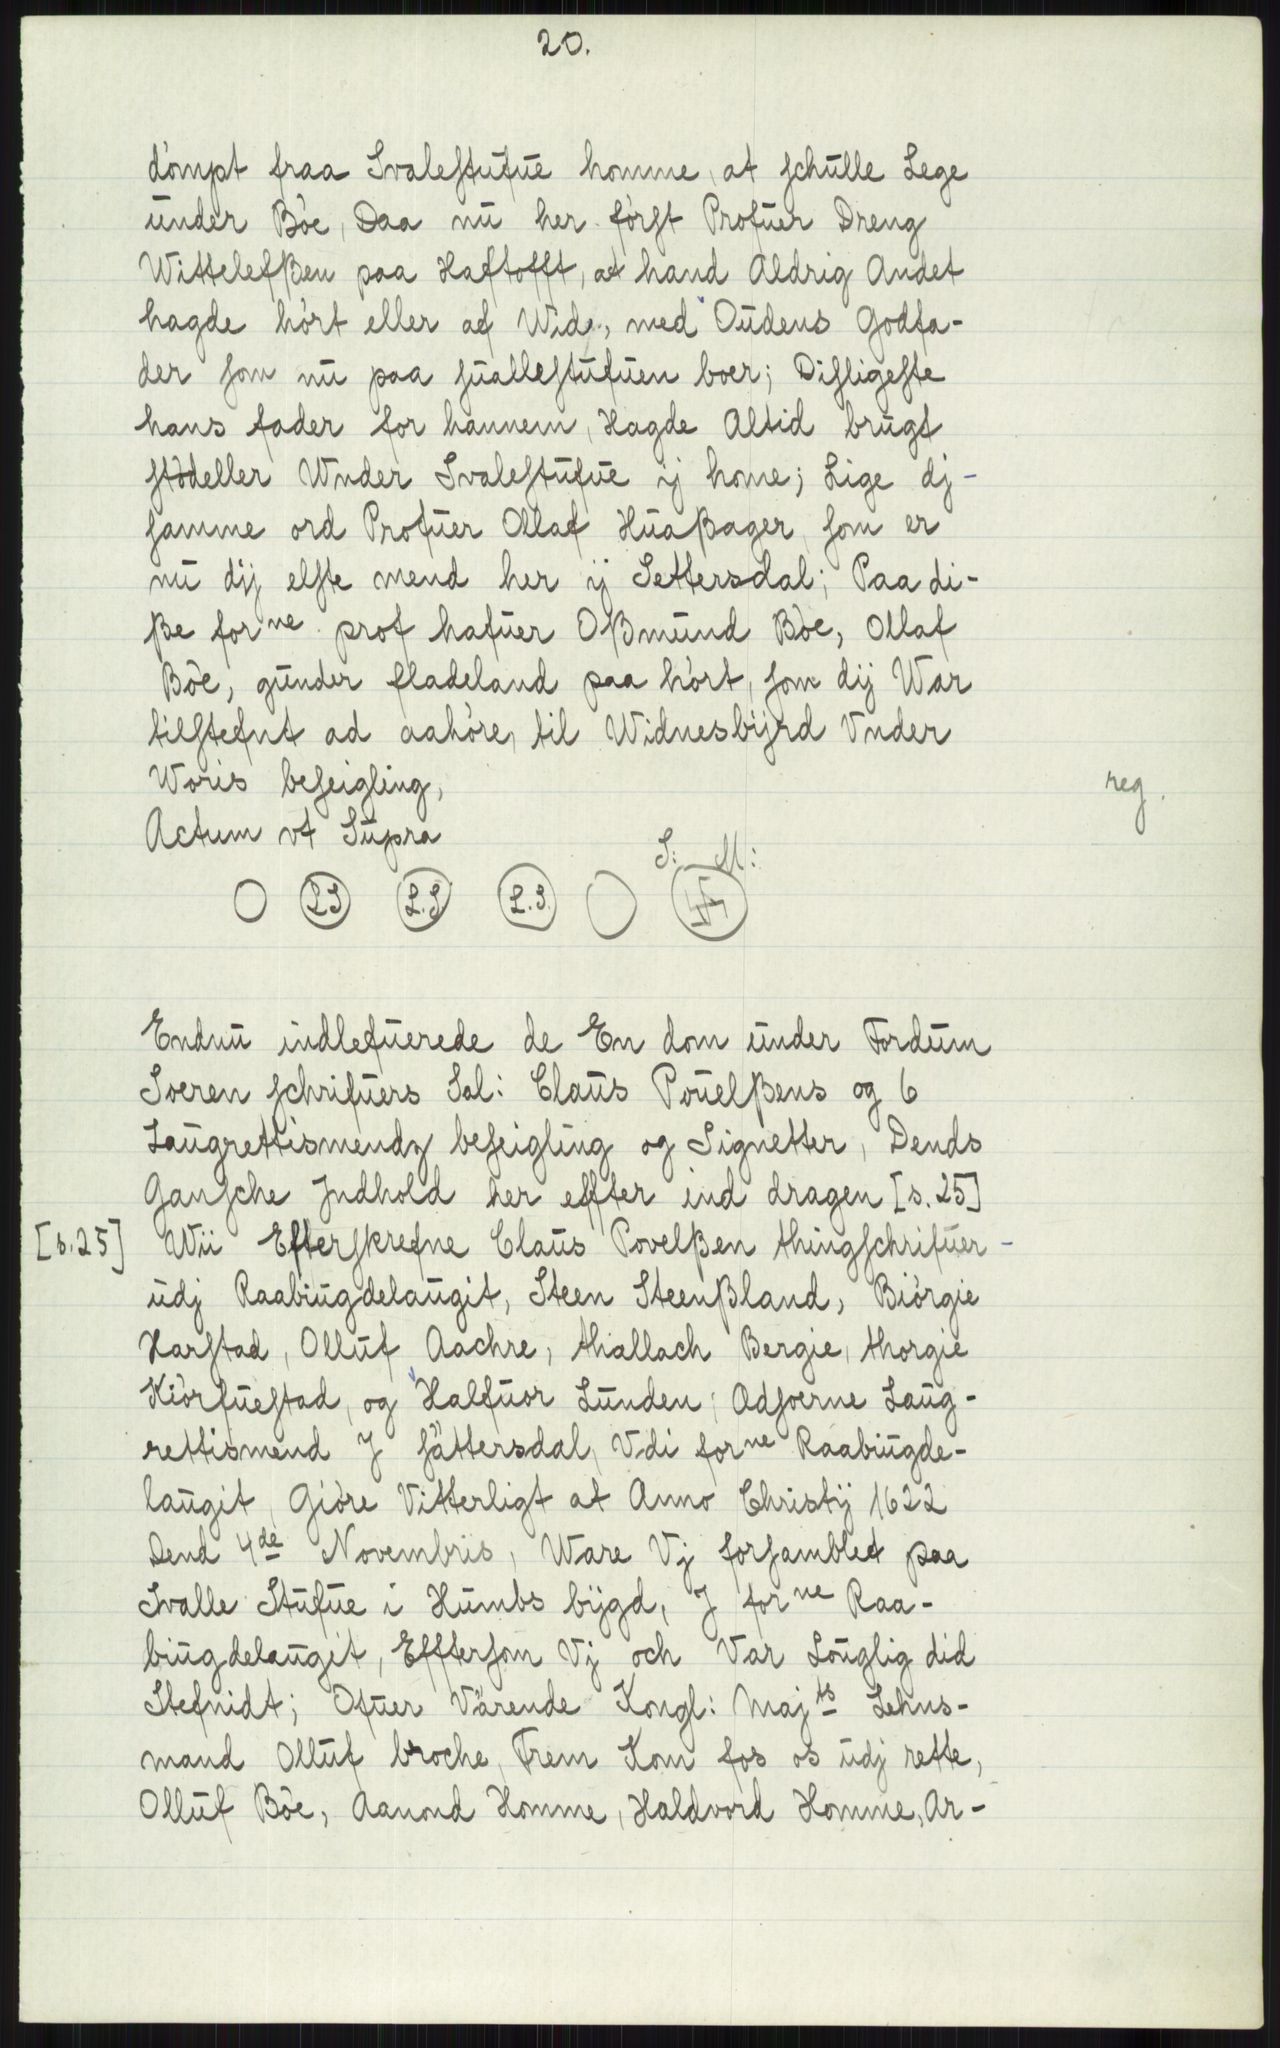 20.
dömpt fraa Svalestufue homme, at schulle Lege
under Böe, Daa nu her först Profuer Dreng
Wittelefßen paa Haftofft, at hand Aldrig Andet
hagde hört eller af Wide, med Oudens Godfa-
der som nu paa suallestufuen boer; Disligeste
hans fader for hannem, Hagde Altid brugt
stödeller Wnder Svalestufue ij home; Lige dj-
samme ord Profuer Ollaf Huaßager, som er
nu dij elste mend her ij Settersdal; Paa di-
ße forne prof hafuer Oßmund Böe, Ollaf
Böe, gunder fladeland paa hört, som dij War
tilstefnt ad aahöre, til Widnesbijrd Vnder
Woris beseigling,
reg.
Actum vt Supra
S: M:
LS L.S L.S.
Endnu indlefuerede de En dom under Fordum
Soeren schrifuers Sal: Claus Pouelßens og 6
Laugrettismendz beseigling og Signetter, Dends
Gansche Jndhold her effter ind dragen [s.25]
[s.25] Wii Efterskrefne Claus Povelßen thingschrifuer-
udj Raabiugdelaugit, Steen Steenßland, Biörgie
Harstad, Olluf Aachre, thallach Bergie, thorgie
Kiörfuestad, og Halfuor Lunden, Adsoerne Laug-
rettismend J sättersdal, Vdi forne Raabiugde-
laugit, Giöre Vitterligt at Anno Christij 1622
Dend 4de Novembris, Ware Vj forsamblet paa
Svalle Stufue i Humbs bijgd, J forne Raa-
biugdelaugit, Efftersom Vj och Var Louglig did
Stefnidt; Ofuer Värende Kongl: Majts Lehns-
mand Olluf broche, Frem Kom fos os udj rette,
Olluf Böe, Aanond Homme, Haldvord Homme, Ar-